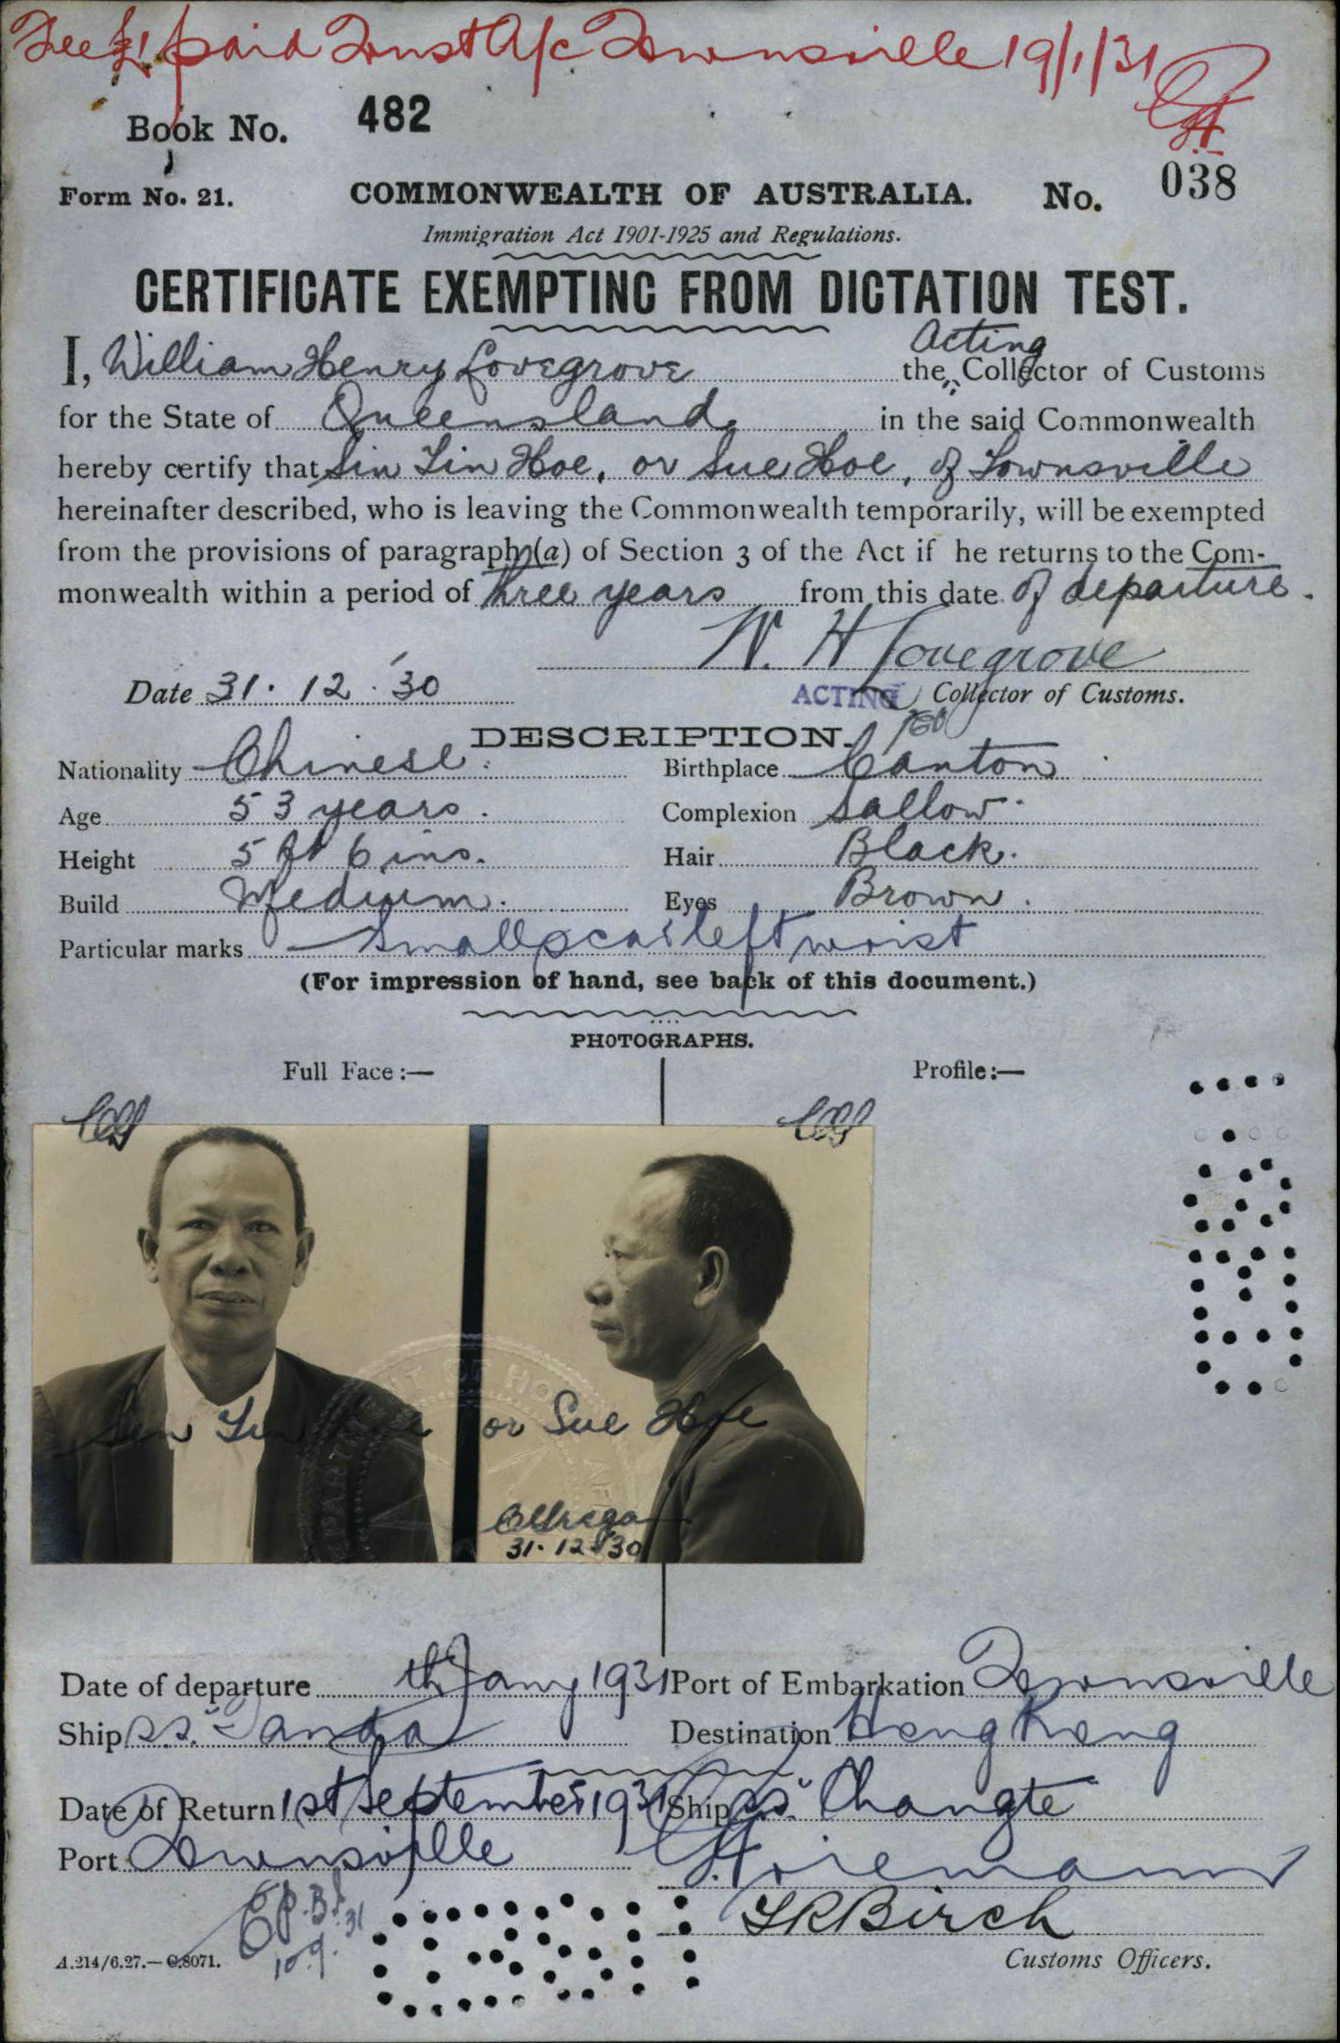 Fee £1 paid Trust A/c Townsville 19/1/31
Book No. 482
Form No. 21. COMMONWEALTH OF AUSTRALIA. No. 038
Immigration Act 1901-1925 and Regulations.
CERTIFICATE EXEMPTING FROM DICTATION TEST.
Acting
I, William Henry Lovegrove the Collector of Customs
for the State of Queensland in the said Commonwealth
hereby certify that Sin Lin Hoe, or Sue Hoe, of Townsville
hereinafter described, who is leaving the Commonwealth temporarily, will be exempted
from the provisions of paragraph (a) of Section 3 of the Act if he returns to the Com-
monwealth within a period of three years from this date of departure.
W. H Lovegrove
Date 31. 12. '30 ACTING Collector of Customs.
DESCRIPTION.
Nationality Chinese. Birthplace Canton
Age 53 years. Complexion Sallow.
Height 5 ft 6 ins. Hair Black.
Build Medium. Eyes Brown.
Particular marks Small scar left wrist
(For impression of hand, see back of this document.)
PHOTOGRAPHS.
Full Face:— Profile:—
Sin Lin Hoe or Sue Hoe
31.12.30
Date of departure th Jany 1931 Port of Embarkation Townsville
Ship s.s. "Tanda Destination Hong Kong
Date of Return 1st September 1931 Ship ss "Changte
Port Townsville
LRBirch
10.9.31
A.214/6.27.—C.8071. Customs Officers.